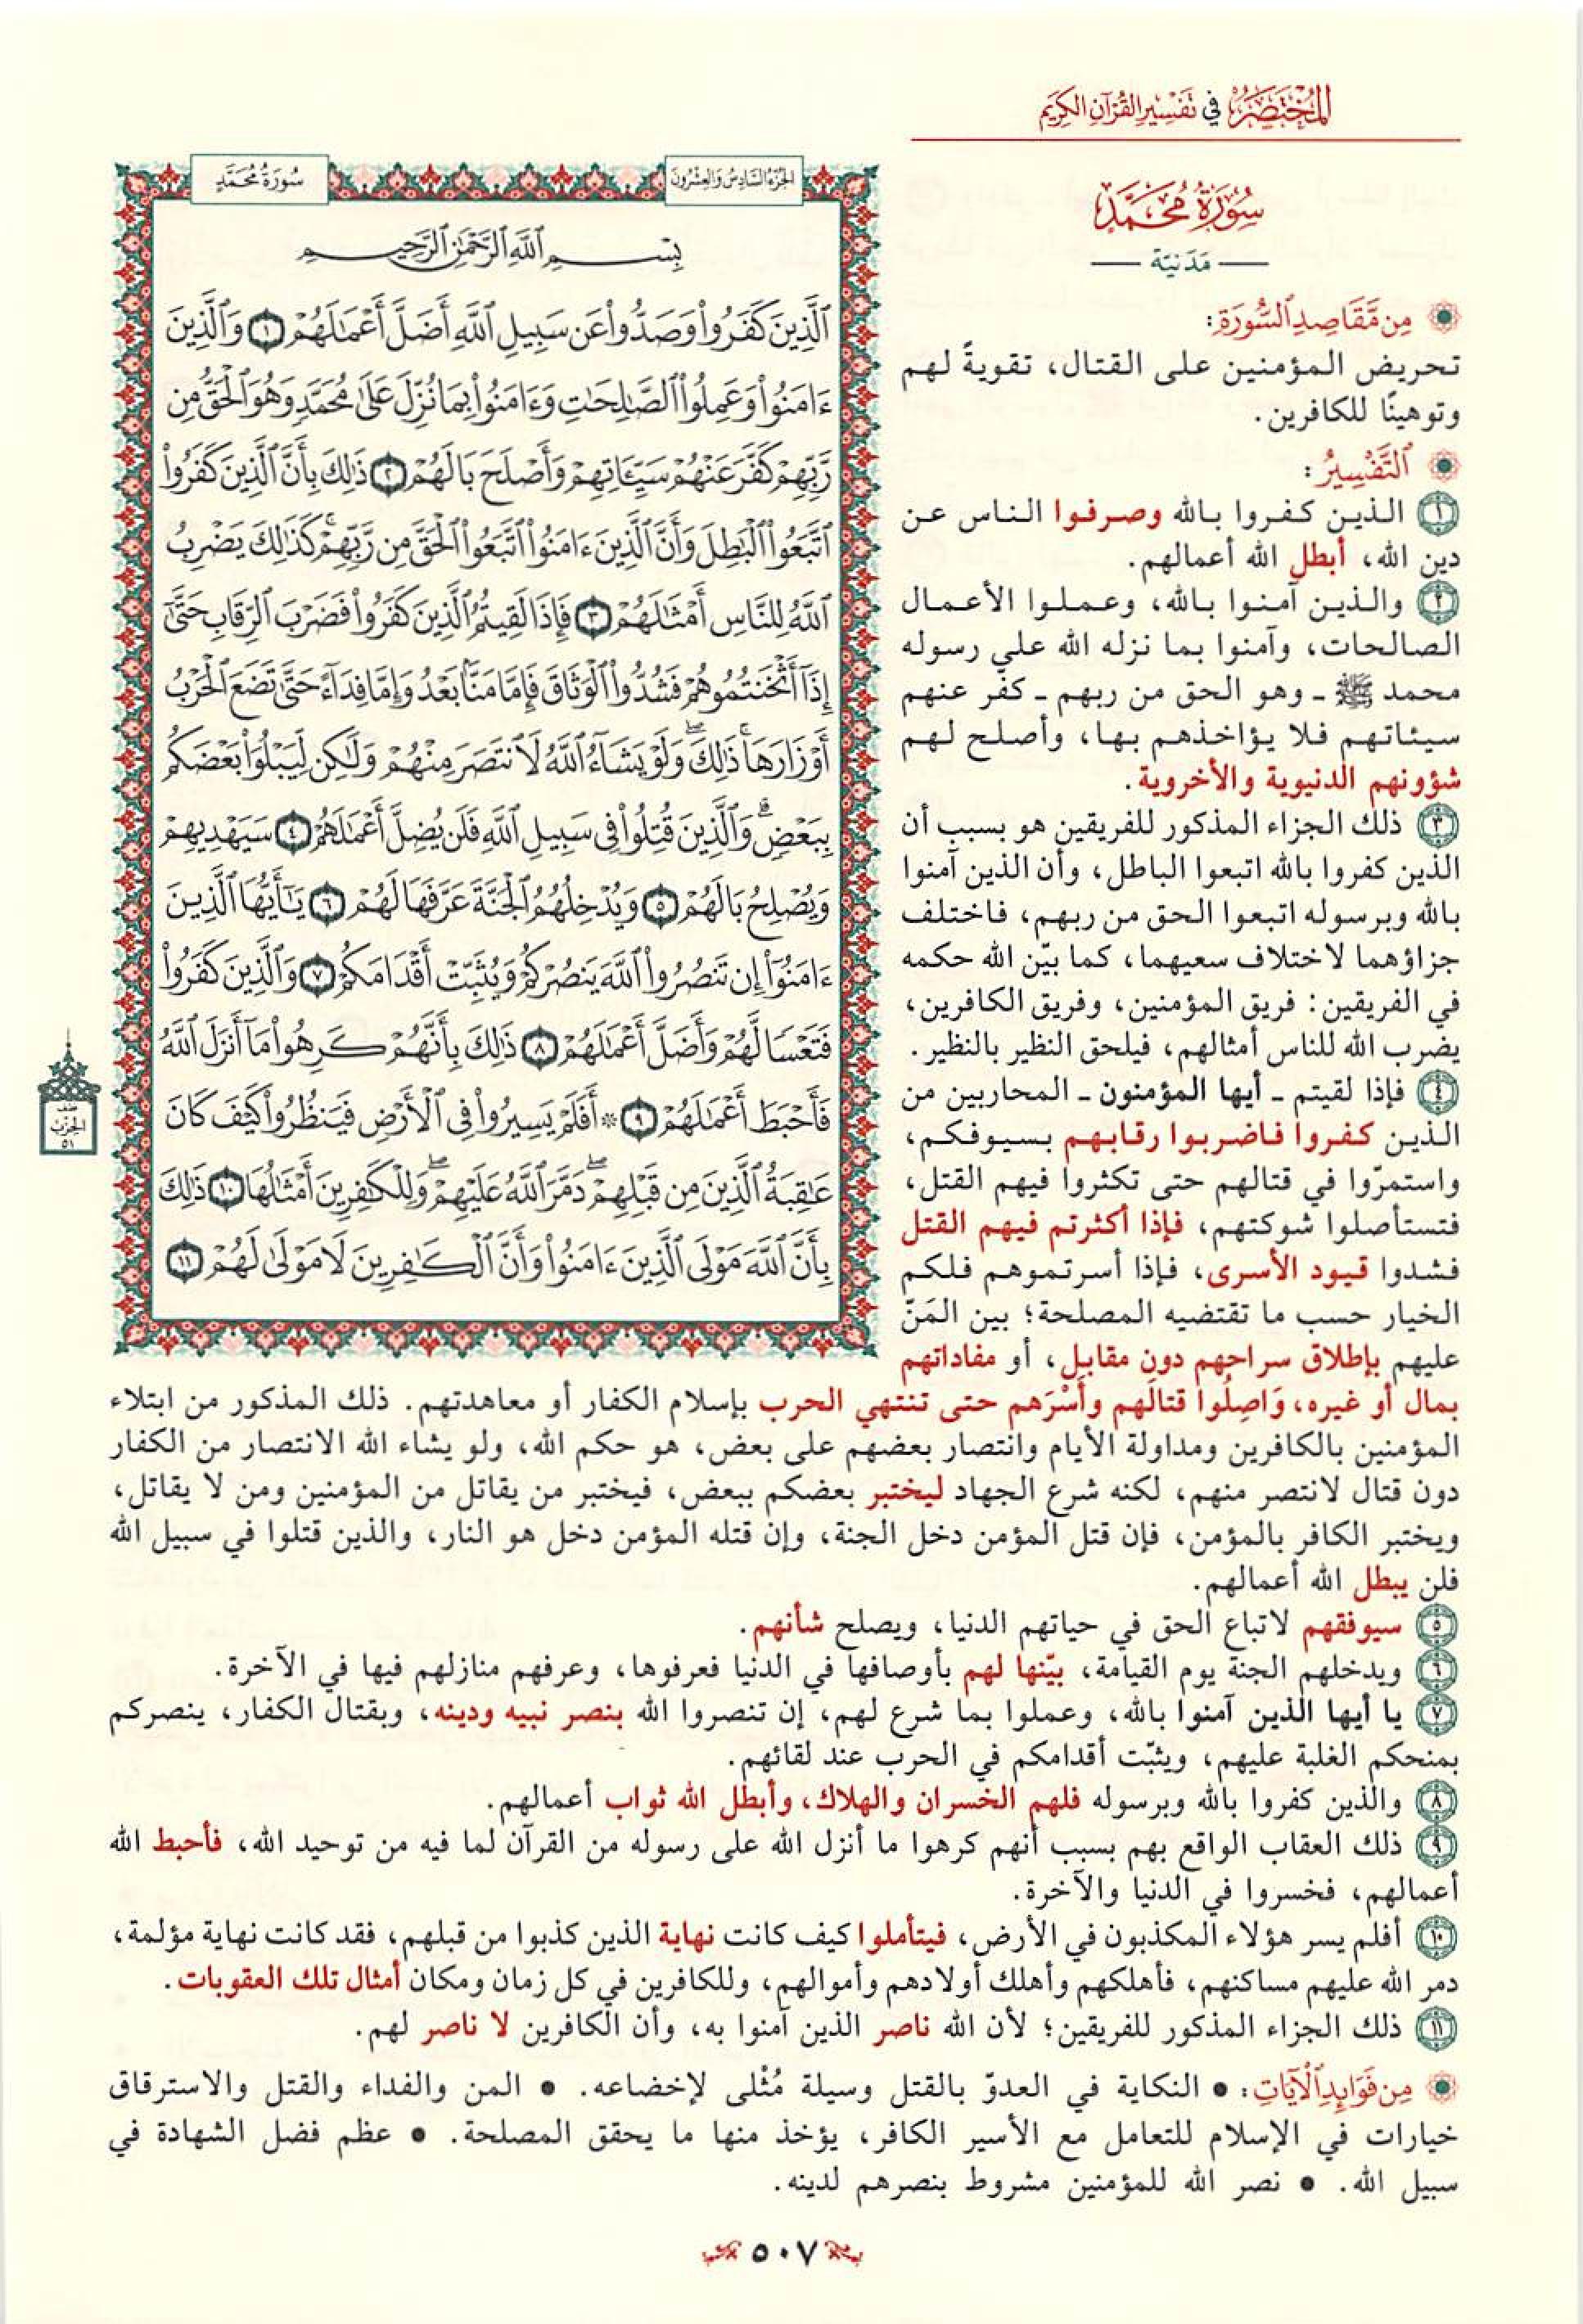 المُخْتَصَرُ في تَفْسِيرِ القُرْآنِ الكَرِيمِ
سُورَةُ مُحَمَّدٍ
مَدَنيّة
مِن مَّقَاصِدِ السُّورَةِ:
تحريض المؤمنين على القتال، تقويةً لهم
وتوهينًا للكافرين.
التَّفْسِيرُ:
١ الذين كفروا بالله وصرفوا الناس عن
دين الله، أبطل الله أعمالهم.
٢ والذين آمنوا بالله، وعملوا الأعمال
الصالحات، وآمنوا بما نزله الله على رسوله
محمد ﷺ ـ وهو الحق من ربهم ـ كفّر عنهم
سيئاتهم فلا يؤاخذهم بها، وأصلح لهم
شؤونهم الدنيوية والأخروية.
٣ ذلك الجزاء المذكور للفريقين هو بسبب أن
الذين كفروا بالله اتبعوا الباطل، وأن الذين آمنوا
بالله وبرسوله اتبعوا الحق من ربهم، فاختلف
جزاؤهما لاختلاف سعيهما، كما بيّن الله حكمه
في الفريقين: فريق المؤمنين، وفريق الكافرين،
يضرب الله للناس أمثالهم، فيلحق النظير بالنظير.
٤ فإذا لقيتم ـ أيها المؤمنون ـ المحاربين من
الذين كفروا فاضربوا رقابهم بسيوفكم،
واستمرّوا في قتالهم حتى تكثروا فيهم القتل،
فتستأصلوا شوكتهم، فإذا أكثرتم فيهم القتل
فشدوا قيود الأسرى، فإذا أسرتموهم فلكم
الخيار حسب ما تقتضيه المصلحة؛ بين المَنّ
عليهم بإطلاق سراحهم دون مقابل، أو مفاداتهم
بمال أو غيره، وَاصِلُوا قتالَهم وأَسْرَهم حتى تنتهي الحرب بإسلام الكفار أو معاهدتهم. ذلك المذكور من ابتلاء
المؤمنين بالكافرين ومداولة الأيام وانتصار بعضهم على بعض، هو حكم الله، ولو يشاء الله الانتصار من الكفار
دون قتال لانتصر منهم، لكنه شرع الجهاد ليختبر بعضكم ببعض، فيختبر من يقاتل من المؤمنين ومن لا يقاتل،
ويختبر الكافر بالمؤمن، فإن قتل المؤمن دخل الجنة، وإن قتله المؤمن دخل هو النار، والذين قتلوا في سبيل الله
فلن يبطل الله أعمالهم.
٥ سيوفقهم لاتباع الحق في حياتهم الدنيا، ويصلح شأنهم.
٦ ويدخلهم الجنة يوم القيامة، بيّنها لهم بأوصافها في الدنيا فعرفوها، وعرفهم منازلهم فيها في الآخرة.
٧ يا أيها الذين آمنوا بالله، وعملوا بما شرع لهم، إن تنصروا الله بنصر نبيه ودينه، وبقتال الكفار، ينصركم
بمنحكم الغلبة عليهم، ويثبّت أقدامكم في الحرب عند لقائهم.
٨ والذين كفروا بالله وبرسوله فلهم الخسران والهلاك، وأبطل الله ثواب أعمالهم.
٩ ذلك العقاب الواقع بهم بسبب أنهم كرهوا ما أنزل الله على رسوله من القرآن لما فيه من توحيد الله، فأحبط الله
أعمالهم، فخسروا في الدنيا والآخرة.
١٠ أفلم يسر هؤلاء المكذبون في الأرض، فيتأملوا كيف كانت نهاية الذين كذبوا من قبلهم، فقد كانت نهاية مؤلمة،
دمر الله عليهم مساكنهم، فأهلكهم وأهلك أولادهم وأموالهم، وللكافرين في كل زمان ومكان أمثال تلك العقوبات.
١١ ذلك الجزاء المذكور للفريقين؛ لأن الله ناصر الذين آمنوا به، وأن الكافرين لا ناصر لهم.
مِن فَوَابِدِ الْآيَاتِ: • النكاية في العدوّ بالقتل وسيلة مُثْلى لإخضاعه. • المن والفداء والقتل والاسترقاق
خيارات في الإسلام للتعامل مع الأسير الكافر، يؤخذ منها ما يحقق المصلحة. • عظم فضل الشهادة في
سبيل الله. • نصر الله للمؤمنين مشروط بنصرهم لدينه.
الجُزْءُ السَّادِسُ وَالعِشْرُونَ
سُورَةُ مُحَمَّدٍ
بِسْمِ ٱللَّهِ ٱلرَّحْمَٰنِ ٱلرَّحِيمِ
ٱلَّذِينَ كَفَرُواْ وَصَدُّواْ عَن سَبِيلِ ٱللَّهِ أَضَلَّ أَعْمَٰلَهُمْ ١ وَٱلَّذِينَ
ءَامَنُواْ وَعَمِلُواْ ٱلصَّٰلِحَٰتِ وَءَامَنُواْ بِمَا نُزِّلَ عَلَىٰ مُحَمَّدٍ وَهُوَ ٱلْحَقُّ مِن
رَّبِّهِمْ كَفَّرَ عَنْهُمْ سَيِّـَٔاتِهِمْ وَأَصْلَحَ بَالَهُمْ ٢ ذَٰلِكَ بِأَنَّ ٱلَّذِينَ كَفَرُواْ
ٱتَّبَعُواْ ٱلْبَٰطِلَ وَأَنَّ ٱلَّذِينَ ءَامَنُواْ ٱتَّبَعُواْ ٱلْحَقَّ مِن رَّبِّهِمْ كَذَٰلِكَ يَضْرِبُ
ٱللَّهُ لِلنَّاسِ أَمْثَٰلَهُمْ ٣ فَإِذَا لَقِيتُمُ ٱلَّذِينَ كَفَرُواْ فَضَرْبَ ٱلرِّقَابِ حَتَّىٰٓ
إِذَآ أَثْخَنتُمُوهُمْ فَشُدُّواْ ٱلْوَثَاقَ فَإِمَّا مَنَّۢا بَعْدُ وَإِمَّا فِدَآءً حَتَّىٰ تَضَعَ ٱلْحَرْبُ
أَوْزَارَهَا ۚ ذَٰلِكَ ۖ وَلَوْ يَشَآءُ ٱللَّهُ لَٱنتَصَرَ مِنْهُمْ وَلَٰكِن لِّيَبْلُوَاْ بَعْضَكُم
بِبَعْضٍ ۗ وَٱلَّذِينَ قُتِلُواْ فِى سَبِيلِ ٱللَّهِ فَلَن يُضِلَّ أَعْمَٰلَهُمْ ٤ سَيَهْدِيهِمْ
وَيُصْلِحُ بَالَهُمْ ٥ وَيُدْخِلُهُمُ ٱلْجَنَّةَ عَرَّفَهَا لَهُمْ ٦ يَٰٓأَيُّهَا ٱلَّذِينَ
ءَامَنُوٓاْ إِن تَنصُرُواْ ٱللَّهَ يَنصُرْكُمْ وَيُثَبِّتْ أَقْدَامَكُمْ ٧ وَٱلَّذِينَ كَفَرُواْ
فَتَعْسًا لَّهُمْ وَأَضَلَّ أَعْمَٰلَهُمْ ٨ ذَٰلِكَ بِأَنَّهُمْ كَرِهُواْ مَآ أَنزَلَ ٱللَّهُ
فَأَحْبَطَ أَعْمَٰلَهُمْ ٩ ۞ أَفَلَمْ يَسِيرُواْ فِى ٱلْأَرْضِ فَيَنظُرُواْ كَيْفَ كَانَ
عَٰقِبَةُ ٱلَّذِينَ مِن قَبْلِهِمْ ۖ دَمَّرَ ٱللَّهُ عَلَيْهِمْ ۖ وَلِلْكَٰفِرِينَ أَمْثَٰلُهَا ١٠ ذَٰلِكَ
بِأَنَّ ٱللَّهَ مَوْلَى ٱلَّذِينَ ءَامَنُواْ وَأَنَّ ٱلْكَٰفِرِينَ لَا مَوْلَىٰ لَهُمْ ١١
نصف
الحزب
٥١
٥٠٧